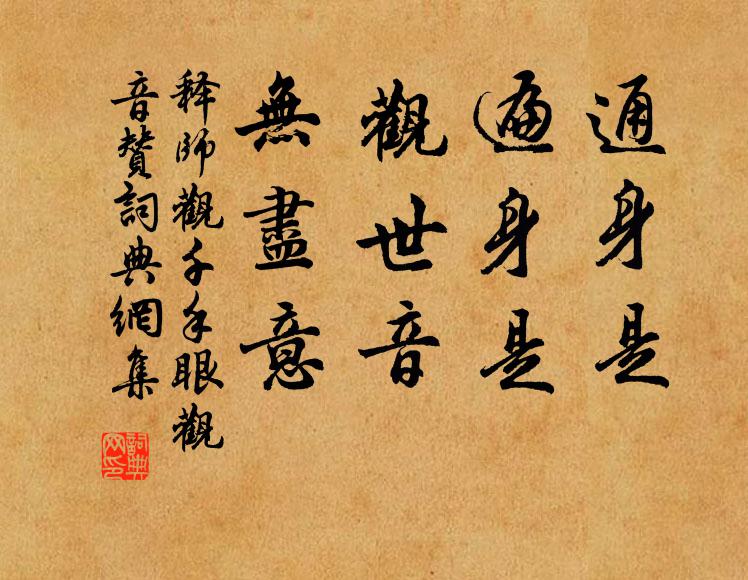 通身是
遍身是
觀世音
無盡意
释師觀千手眼觀
音贊詞典網集
詞典
网印